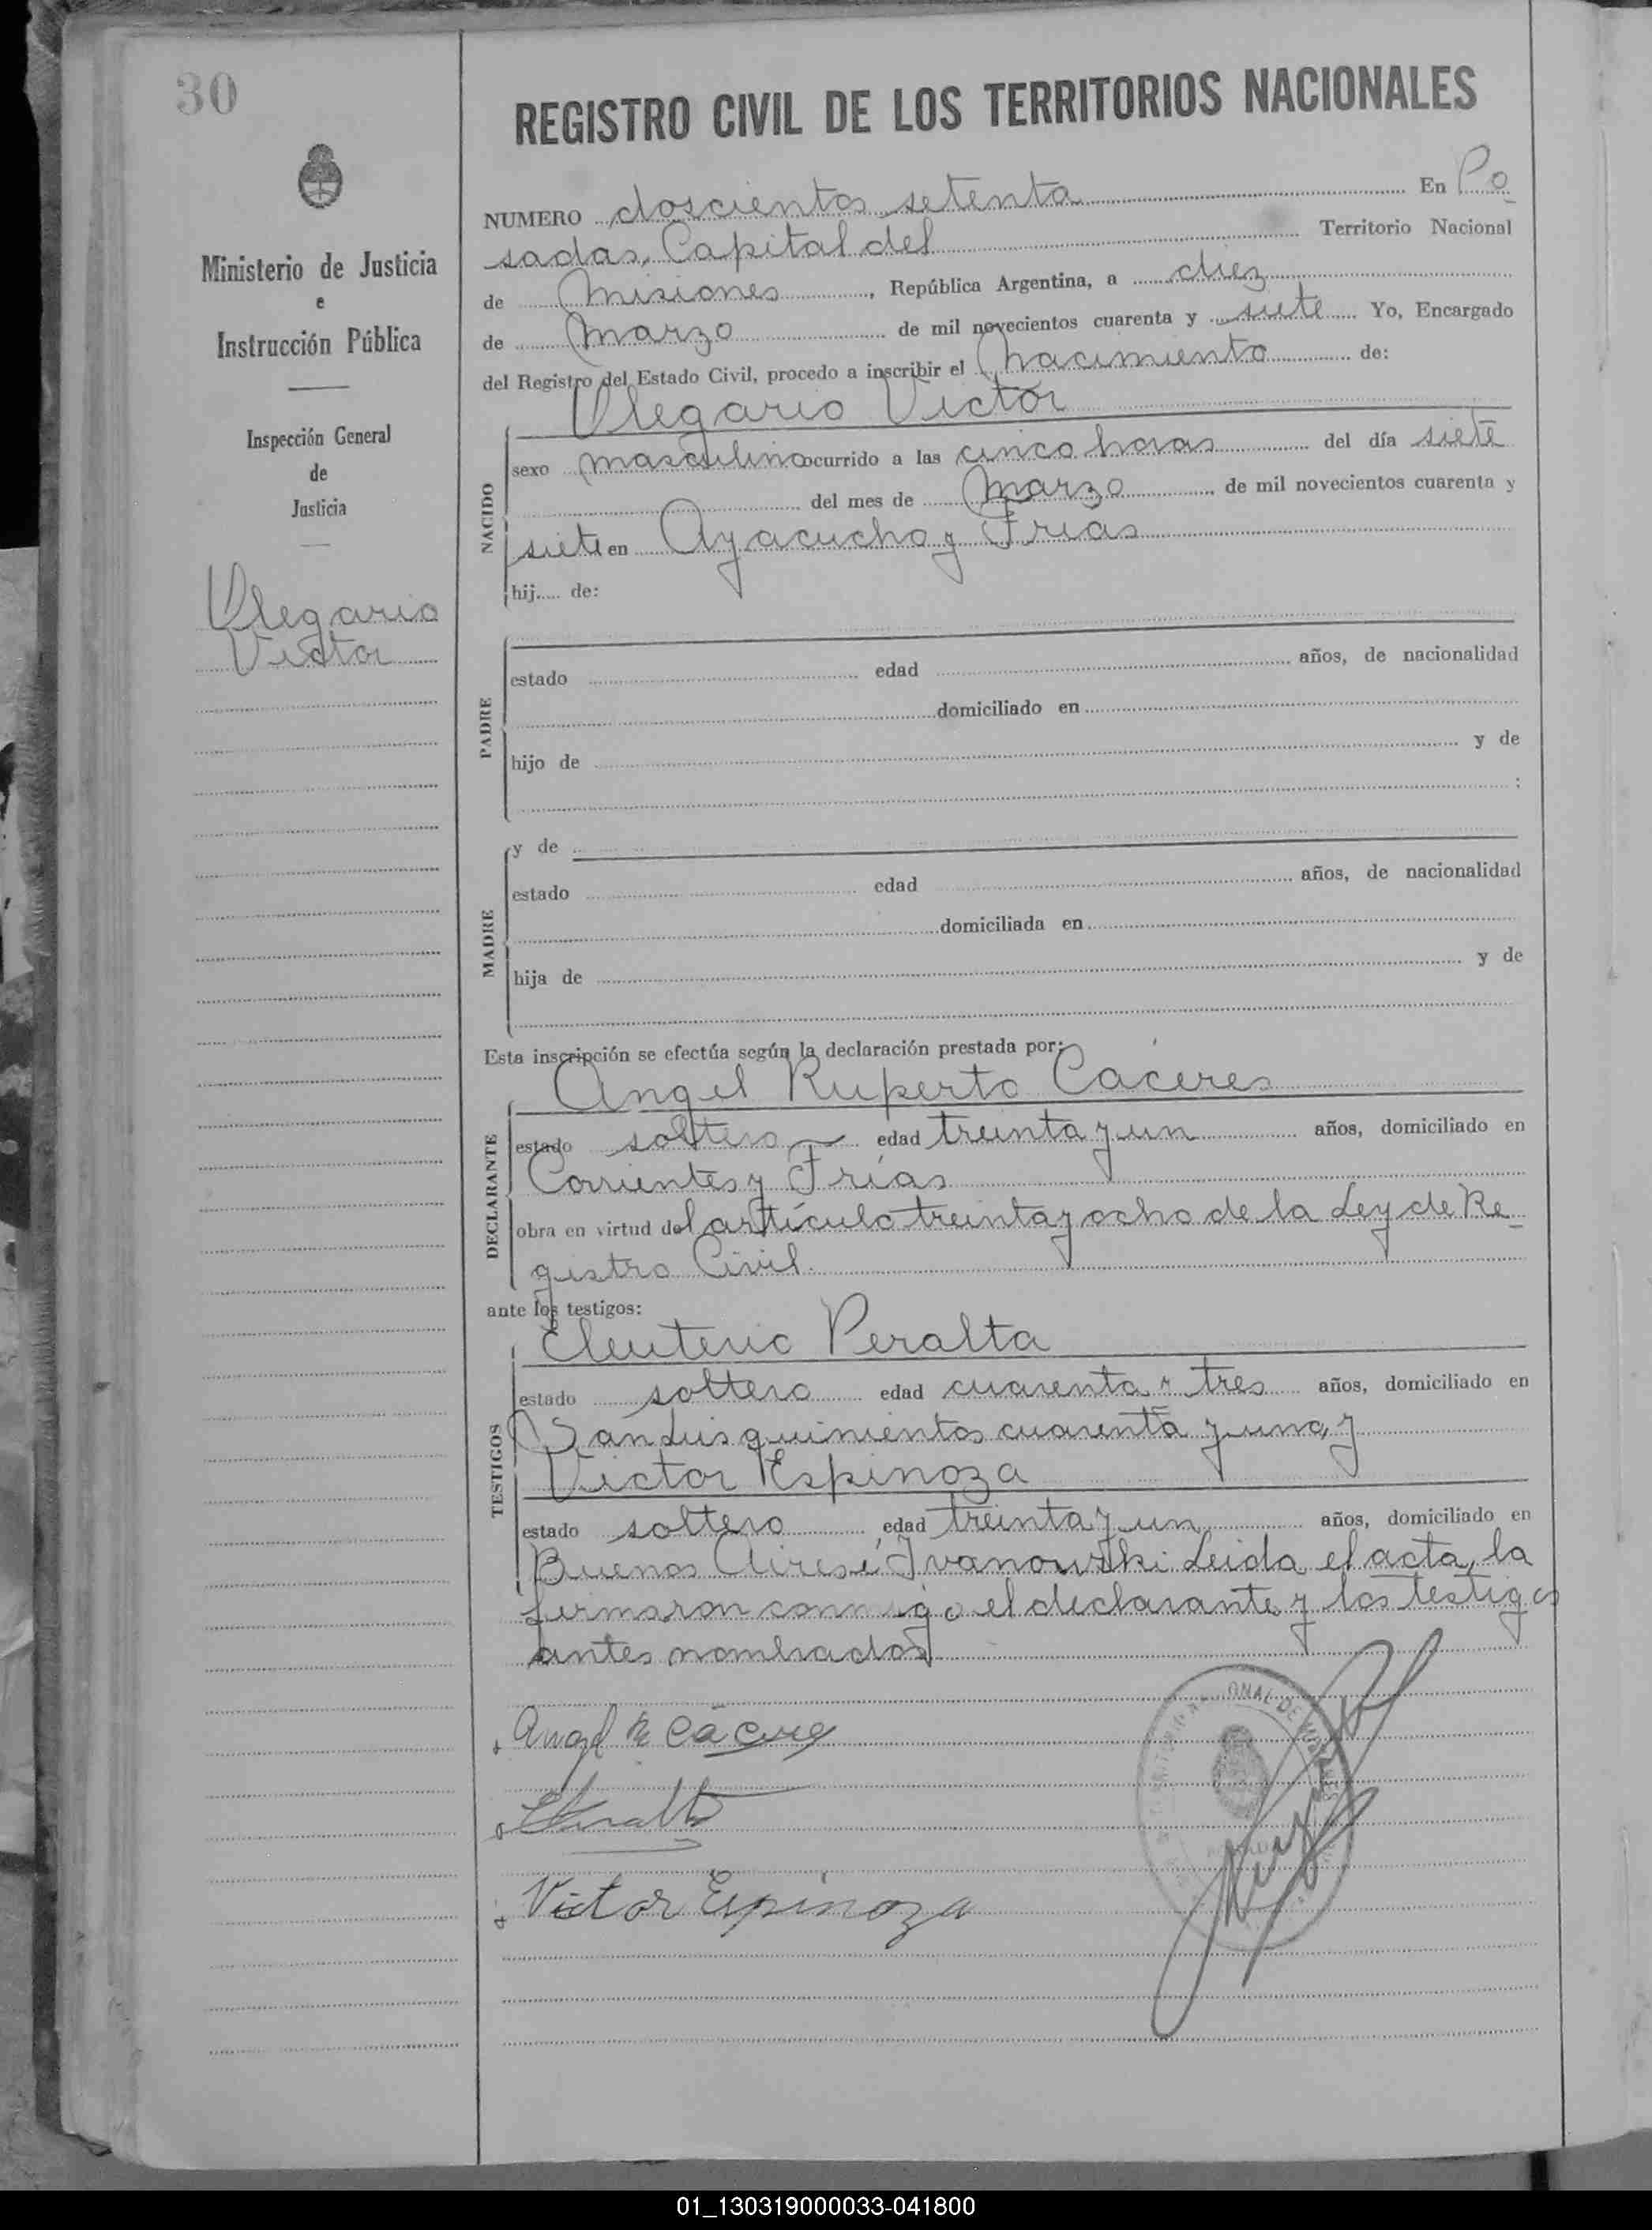 30
REGISTRO CIVIL DE LOS TERRITORIOS NACIONALES
Ministerio de Justicia
e
Instrucción Pública
Inspección General
de
Justicia
Olegario
Victor
NUMERO doscientos setenta En Po
sadas, Capital del Territorio Nacional
de Misiones, República Argentina, a diez
de Marzo de mil novecientos cuarenta y siete Yo, Encargado
del Registro del Estado Civil, procedo a inscribir el nacimiento de:
Olegario Victor
NACIDO
sexo masculino ocurrido a las cinco horas del día siete
del mes de Marzo de mil novecientos cuarenta y
siete en Ayacucho y Frias
hij.... de:
PADRE
estado edad años, de nacionalidad
domiciliado en
hijo de y de
;
MADRE
y de
estado edad años, de nacionalidad
domiciliada en
hija de y de
Esta inscripción se efectúa según la declaración prestada por:
Angel Ruperto Caceres
DECLARANTE
estado soltero edad treinta y un años, domiciliado en
Corrientes y Frías
obra en virtud del artículo treinta y ocho de la Ley de Re
gistro Civil.
ante los testigos:
Eleuterio Peralta
TESTIGOS
estado soltero edad cuarenta y tres años, domiciliado en
San Luis quinientos cuarenta y uno, y
Victor Espinoza
estado soltero edad treinta y un años, domiciliado en
Buenos Aires é Ivanowski. Leida el acta, la
firmaron conmigo el declarante y los testigos
antes nombrados
Angel R Cáceres
EPeralta
Victor Espinoza
01_130319000033-041800